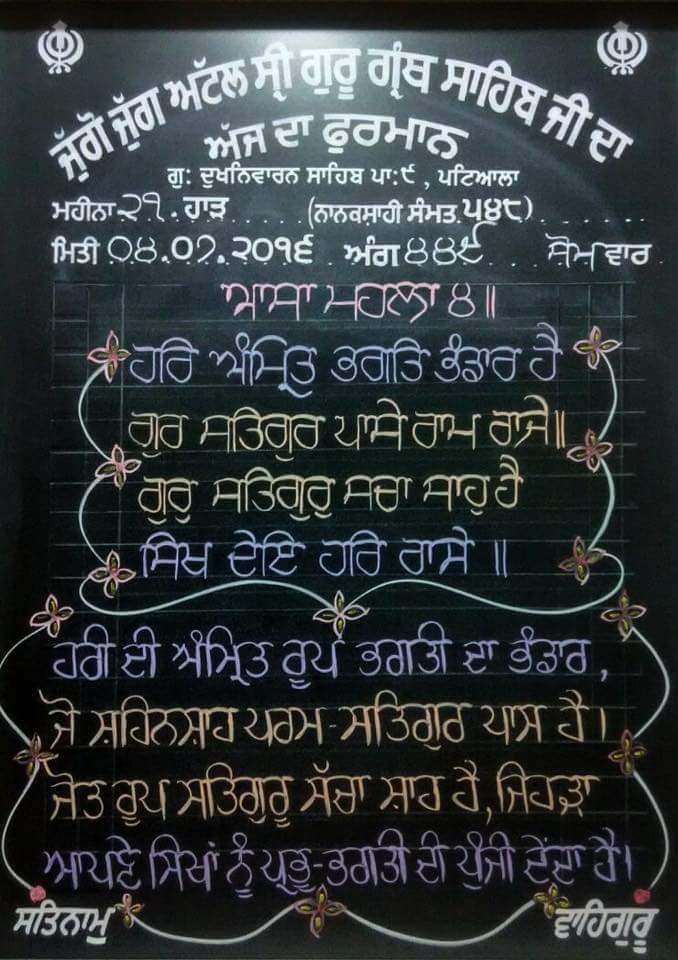 ਜੁੱਗੋ ਜੁੱਗ ਅੱਟਲ ਸ੍ਰੀ ਗੁਰੂ ਗ੍ਰੰਥ ਸਾਹਿਬ ਜੀ ਦਾ
ਅੱਜ ਦਾ ਫੁਰਮਾਨ
ਗੁ: ਦੁਖਨਿਵਾਰਨ ਸਾਹਿਬ ਪਾ:੯ , ਪਟਿਆਲਾ
ਮਹੀਨਾ ੨੧. ਹਾੜ (ਨਾਨਕਸਾਹੀ ਸੰਮਤ ੫੪੮)
ਮਿਤੀ 0੪.0੭.੨0੧੬ ਅੰਗ ੪੪੯ ਸੋਮ ਵਾਰ
ਆਸਾ ਮਹਲਾ ੪॥
ਹਰਿ ਅੰਮ੍ਰਿਤ ਭਗਤਿ ਭੰਡਾਰ ਹੈ
ਗੁਰ ਸਤਿਗੁਰ ਪਾਸੇ ਰਾਮ ਰਾਜੇ॥
ਗੁਰੁ ਸਤਿਗੁਰੁ ਸਚਾ ਸਾਹੁ ਹੈ
ਸਿਖ ਦੇਇ ਹਰਿ ਰਾਸੇ ॥
ਹਰੀ ਦੀ ਅੰਮ੍ਰਿਤ ਰੂਪ ਭਗਤੀ ਦਾ ਭੰਡਾਰ,
ਜੋ ਸ਼ਹਿਨਸ਼ਾਹ ਪਰਮ-ਸਤਿਗੁਰ ਪਾਸ ਹੈ।
ਜੋਤ ਰੂਪ ਸਤਿਗੁਰੂ ਸੱਚਾ ਸ਼ਾਹ ਹੈ, ਜਿਹੜਾ
ਆਪਣੇ ਸਿਖਾਂ ਨੂੰ ਪ੍ਰਭੂ-ਭਗਤੀ ਦੀ ਪੂੰਜੀ ਦੇਂਦਾ ਹੈ।
ਸਤਿਨਾਮੁ ਵਾਹਿਗੁਰੂ